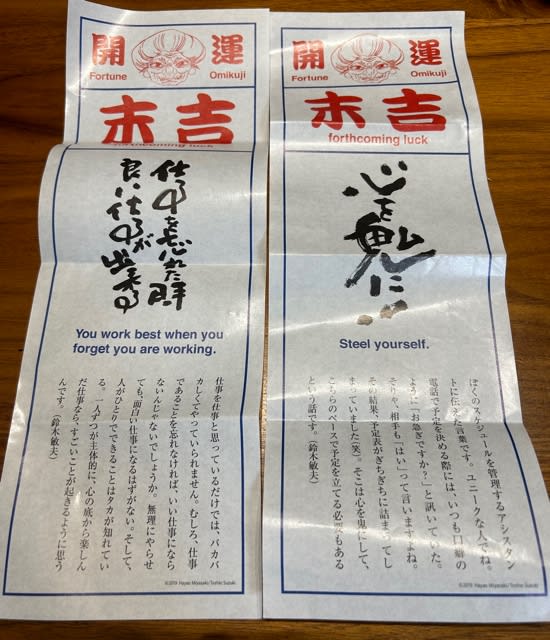 開運
Fortune Omikuji
末吉
forthcoming luck
仕事を忘れた時
良い仕事が
出来る
You work best when you
forget you are working.
仕事を仕事と思っているだけでは、バカバ
カしくてやっていられません。むしろ、仕事
であることを忘れなければ、いい仕事になら
ないんじゃないでしょうか。無理にやらせ
ても、面白い仕事になるはずがない。そして、
人がひとりでできることはタカが知れてい
る。一人ずつが主体的に、心の底から楽しん
だ仕事なら、すごいことが起きるように思う
んです。(鈴木敏夫)
©2019 Hayao Miyazaki/Toshio Suzuki
開運
Fortune Omikuji
末吉
forthcoming luck
心を鬼に
Steel yourself.
ぼくのスケジュールを管理するアシスタン
トに伝えた言葉です。ユニークな人でね。
電話で予定を決める際には、いつも口癖の
ように「お急ぎですか?」と訊いていた。
そりゃ、相手も「はい」って言いますよね。
その結果、予定表がぎちぎちに詰まってし
まっていました(笑)。そこは心を鬼にして、
こちらのペースで予定を立てる必要もある
という話です。(鈴木敏夫)
©2019 Hayao Miyazaki/Toshio Suzuki